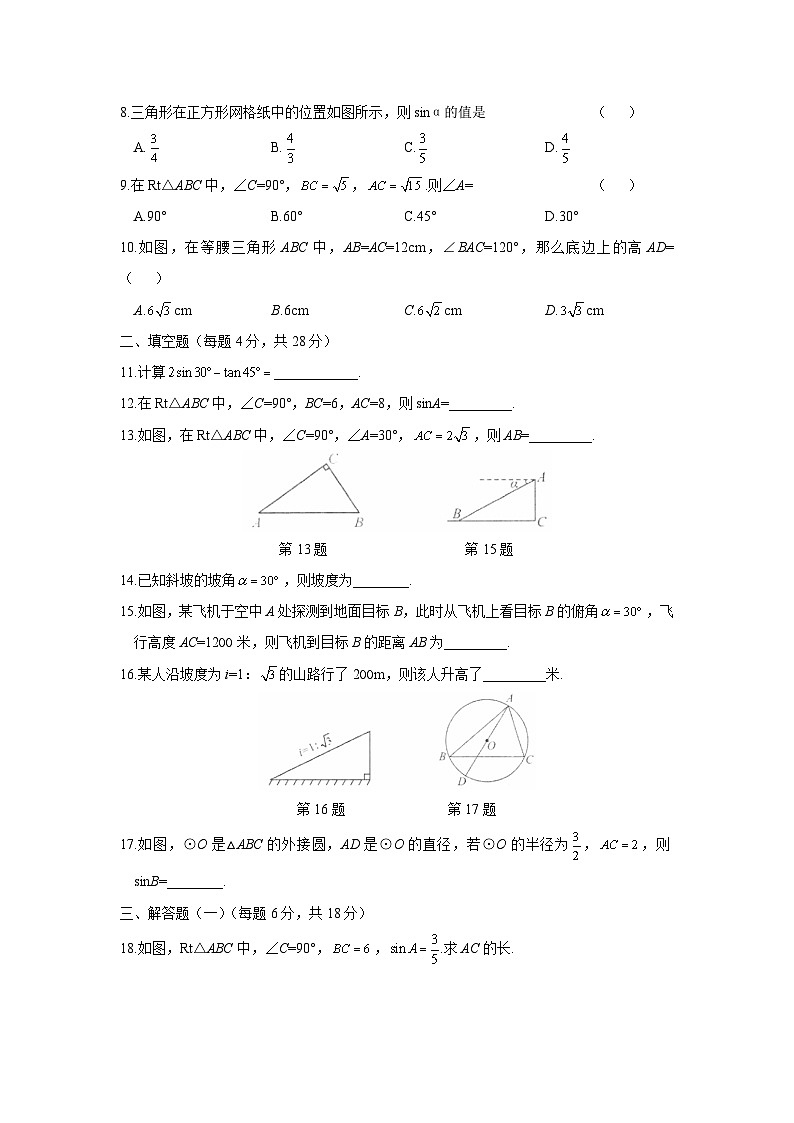 8.三角形在正方形网格纸中的位置如图所示，则 sin α 的值是 （ ）
A. 3/4 B. 4/3 C. 3/5 D. 4/5
9.在 Rt△ABC 中，∠C=90°，BC = √5，AC = √15 .则∠A= （ ）
A.90° B.60° C.45° D.30°
10.如图，在等腰三角形 ABC 中，AB=AC=12cm，∠BAC=120°，那么底边上的高 AD=
（ ）
A.6√3 cm B.6cm C.6√2 cm D.3√3 cm
二、填空题（每题 4 分，共 28 分）
11.计算 2sin30° − tan45° = ____________.
12.在 Rt△ABC 中，∠C=90°，BC=6，AC=8，则 sinA=_________.
13.如图，在 Rt△ABC 中，∠C=90°，∠A=30°，AC = 2√3，则 AB=_________.
C
A B
A
α
B
C
第 13 题 第 15 题
14.已知斜坡的坡角 α = 30°，则坡度为________.
15.如图，某飞机于空中 A 处探测到地面目标 B，此时从飞机上看目标 B 的俯角 α = 30°，飞
行高度 AC=1200 米，则飞机到目标 B 的距离 AB 为_________.
16.某人沿坡度为 i=1：√3 的山路行了 200m，则该人升高了_________米.
i=1:√3
A
O
B C
D
第 16 题 第 17 题
17.如图，⊙O 是△ABC 的外接圆，AD 是⊙O 的直径，若⊙O 的半径为 3/2，AC = 2，则
sinB=________.
三、解答题（一）（每题 6 分，共 18 分）
18.如图，Rt△ABC 中，∠C=90°，BC = 6，sin A = 3/5.求 AC 的长.